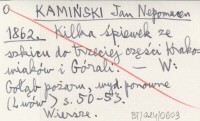 KAMIŃSKI Jan Nepomucen
1862. Kilka śpiewek ze
szkicu do trzeciej części Krako-
wiaków i Górali. — W:
Gołąb pożaru, wyd. ponowne
(Lwów) s. 50-53.
Wiersze.